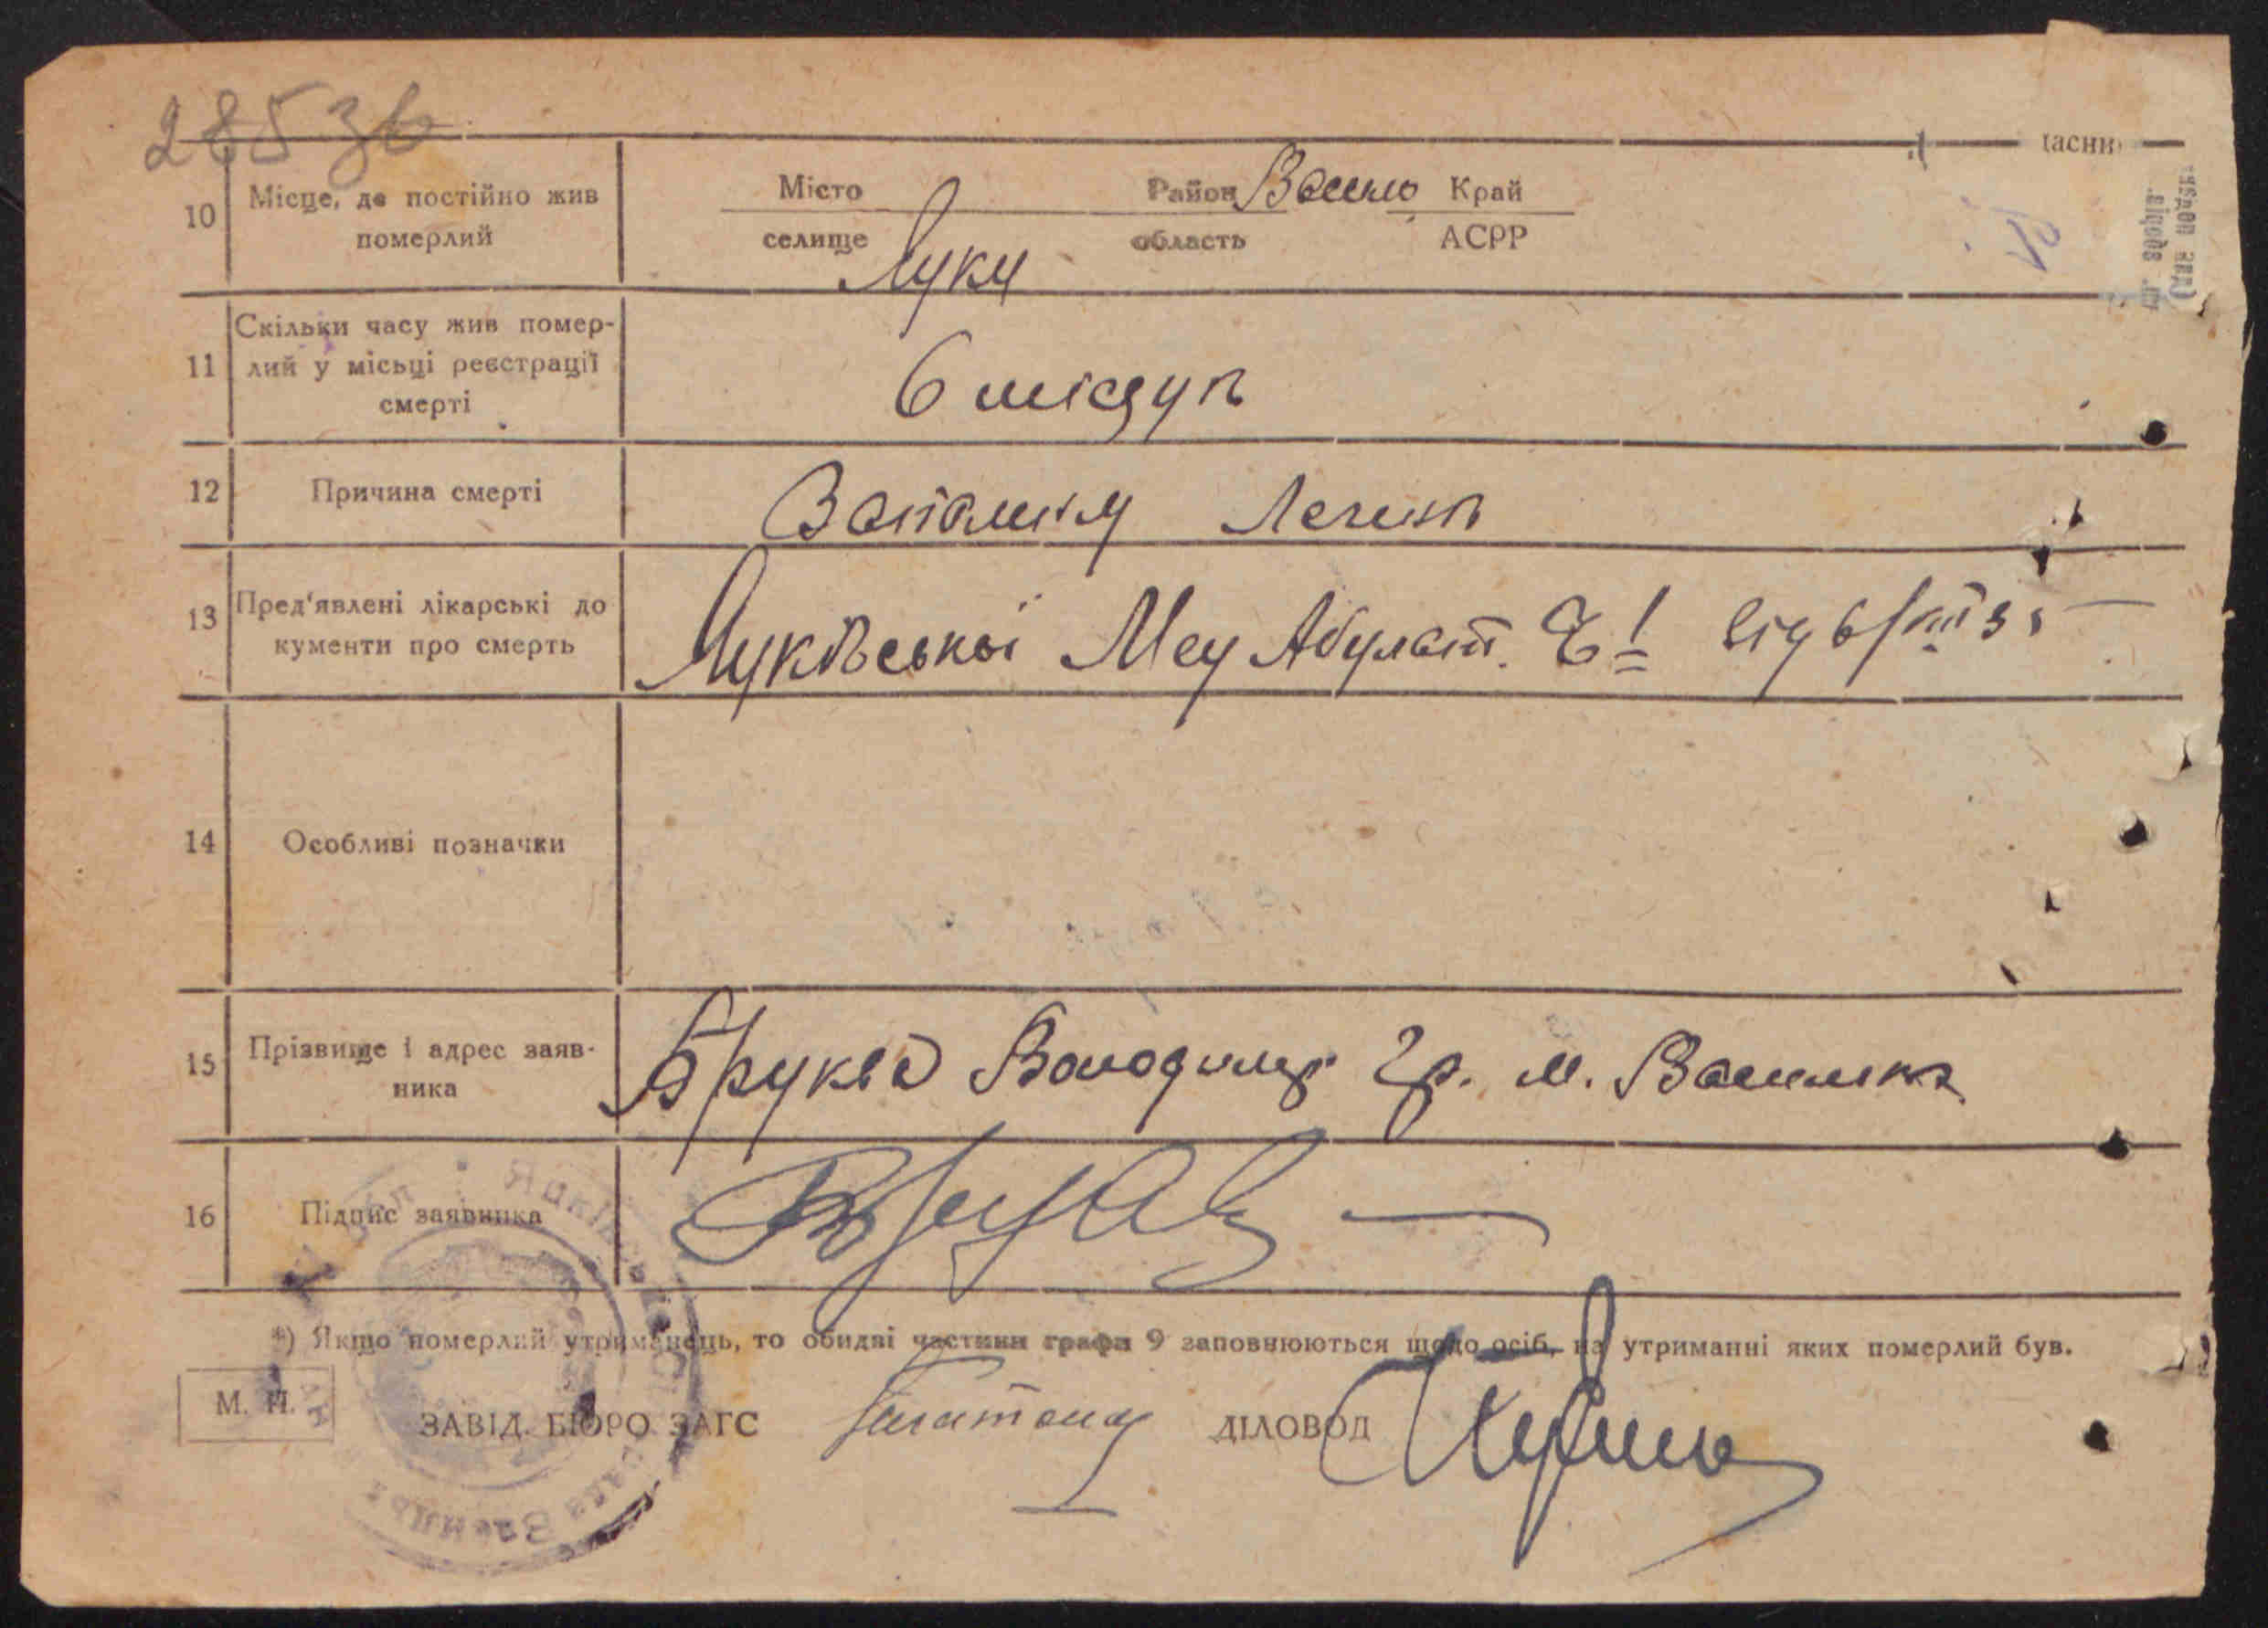 28536
часни
10 Місце, де постійно жив померлий
Місто Район Край
селище область АСРР
Луки
11 Скільки часу жив помер-
лий у місьці реєстрації
смерті
6 місяців
12 Причина смерті
Запалим Легень
13 Пред'явлені лікарські до
кументи про смерть
Луківської Мед Абулат. № 1 від
14 Особливі позначки
15 Прізвище і адрес заяв-
ника
Бруква Володимир гр. м.
16 Підпис заявника
*) Якщо померлий утриманець, то обидві частини графи 9 заповнюються щодо осіб, на утриманні яких померлий був.
М. П.
ЗАВІД. БЮРО ЗАГС ДІЛОВОД